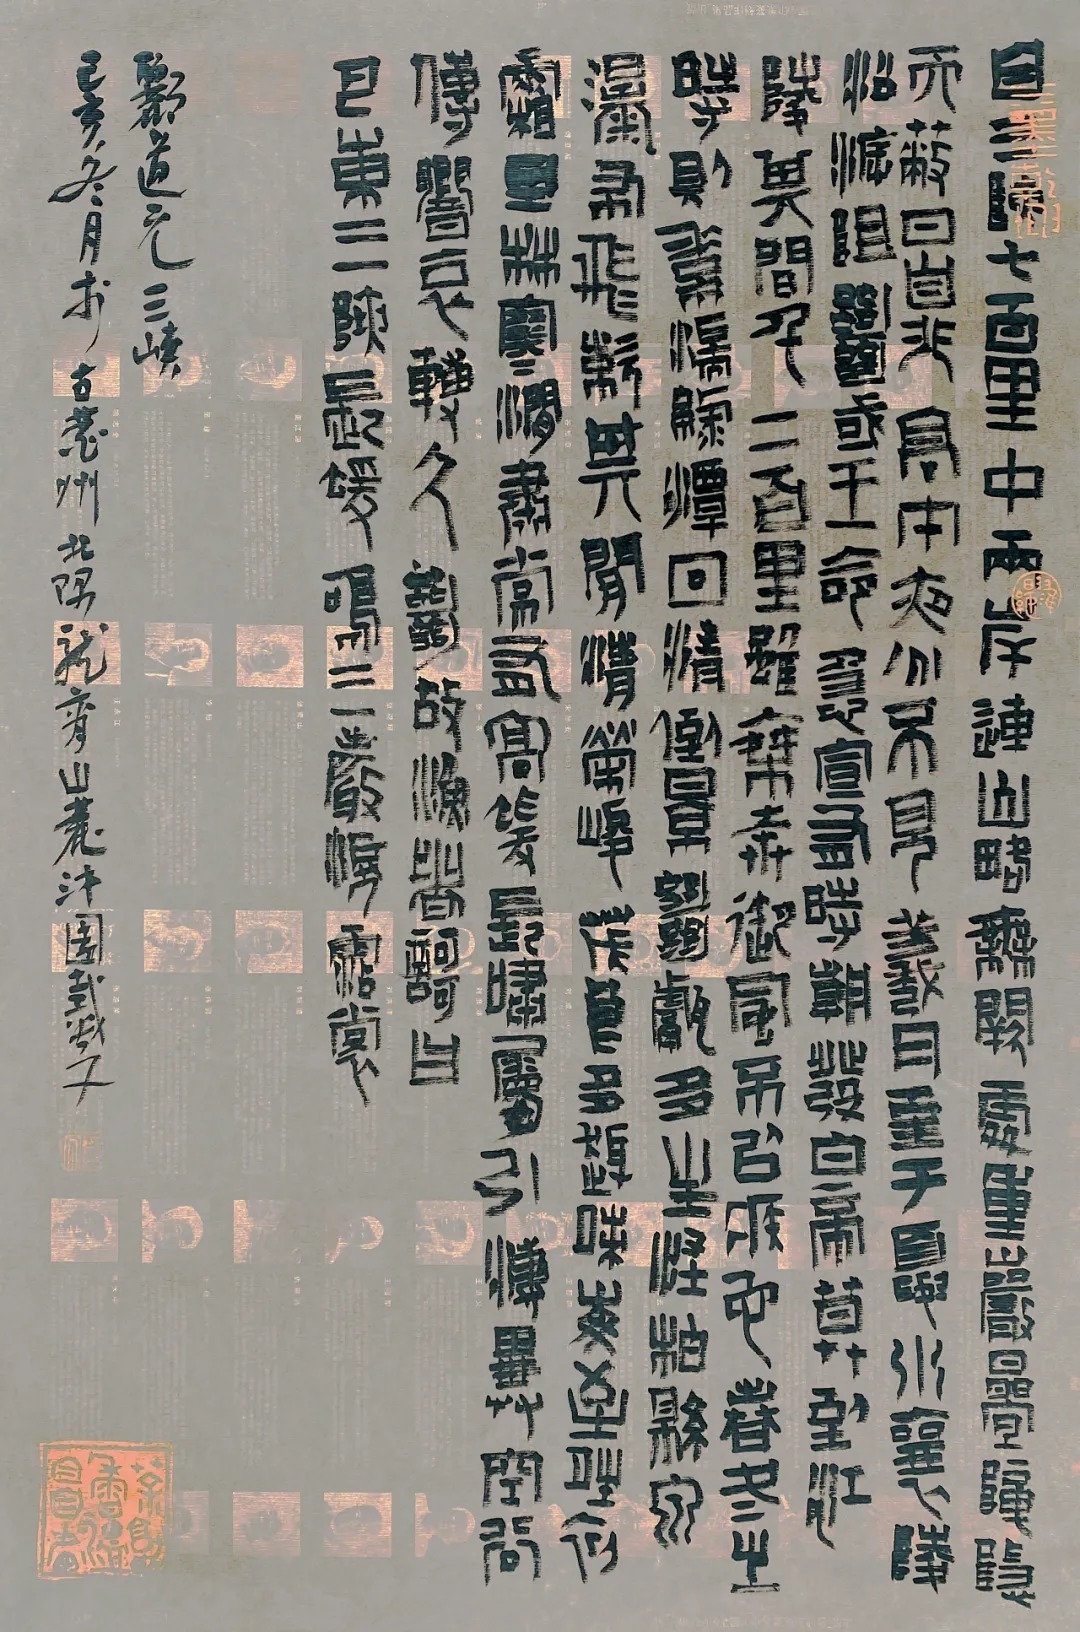 自三陝七百里中兩岸連山略無闕處重巖疊嶂隱
天蔽日自非亭午夜分不見羲月至于夏水襄陵
沿溯阻絕或王命急宣有時朝發白帝莫到江
陵其間千二百里雖乘奔御風不以疾也春冬之
時則素湍綠潭回清倒景絕巘多生怪柏懸泉
瀑布飛漱其間清榮峻茂良多趣味每至晴初
霜旦林寒澗肅常有高猨長嘯屬引淒異空谷
傳響哀轉久絕故漁者歌曰
巴東三陝長猨鳴三聲淚霑裳
酈道元三峽
己亥冬月於古州北隅龍脊山麓沐園